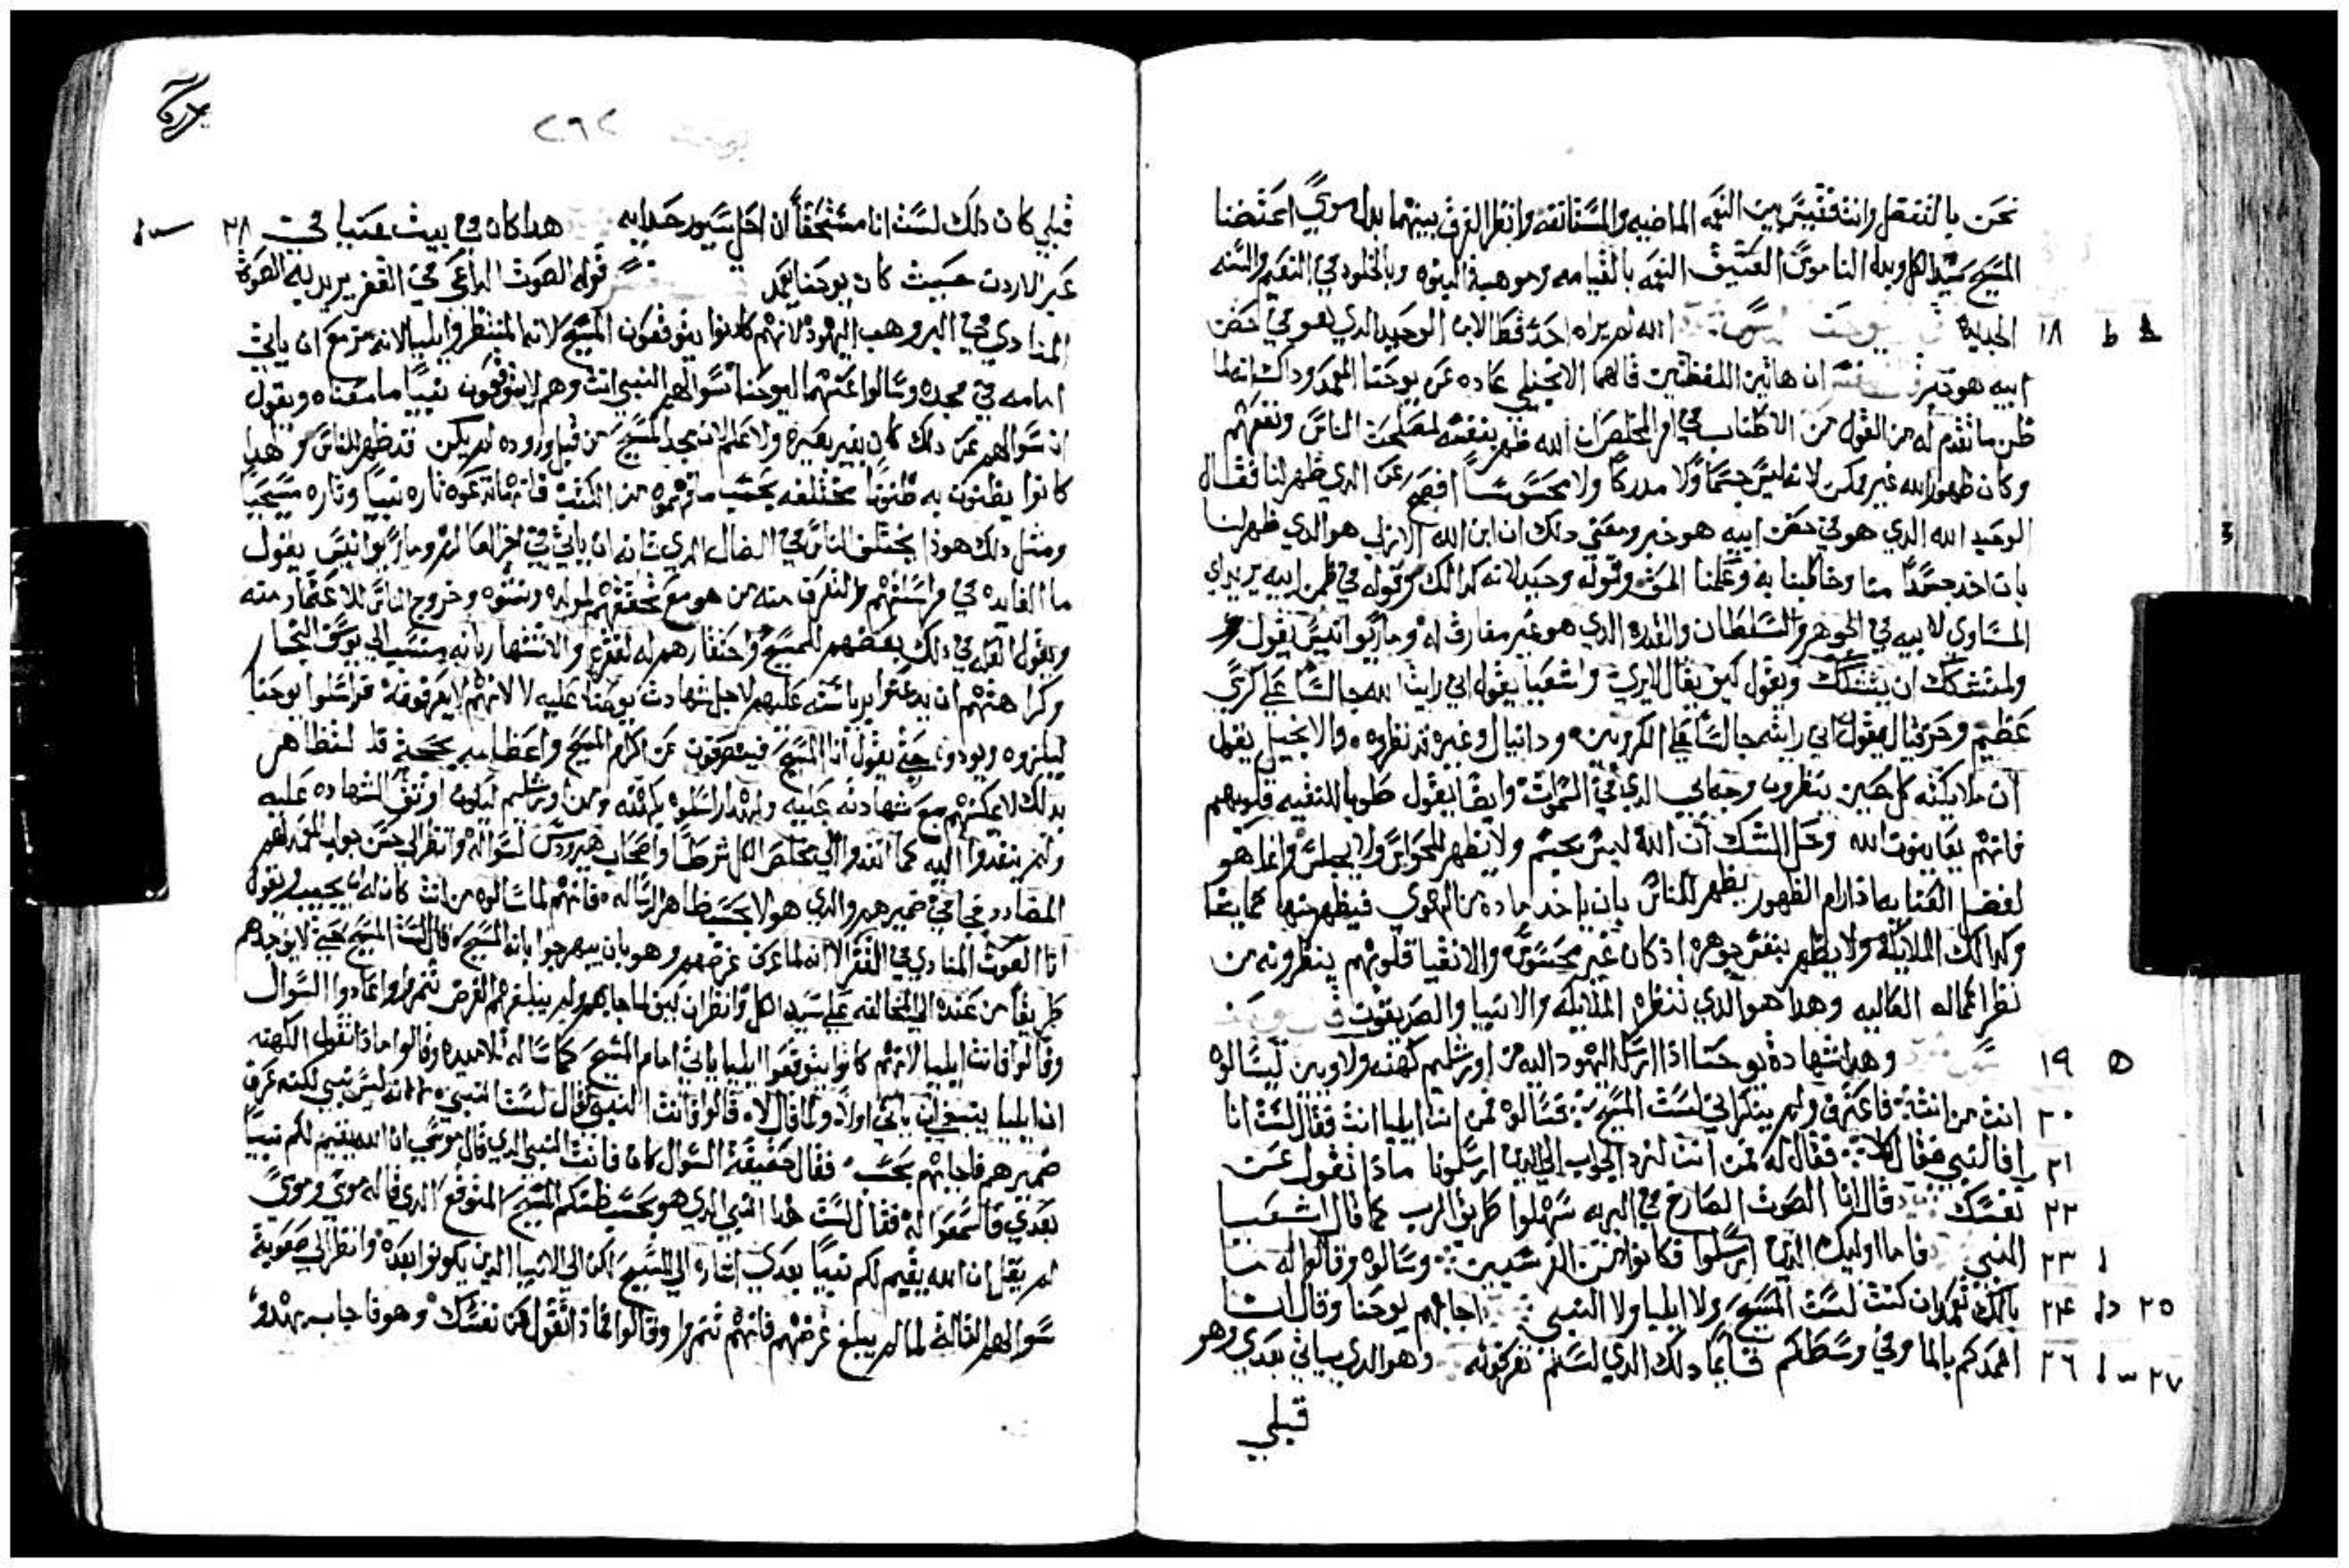 نحن بالتفضل وانت فقيس بين النعمه الماضيه والمستانفه وانظر الفرق بينهما بدل موسي اعتضنا
المسيح سيد الكل وبدل الناموس العتيق النعمه بالقيامه وموهبة البنوه وبالخلود في النعيم والسنه
١٨ الجديده الله لم يراه احد قط الابن الوحيد الذي هو في حضن
ابيه هو خبر ان هاتين اللفظتين قالهما الانجيلي عاده عن يوحنا المعمد وذاك انه لما
ظن ما تقدم له من القول من الاطناب في امر المخلص ان الله ظهر بنفسه لمصلحة الناس ونفعهم
وكان ظهور الله غير ممكن لانه ليس جسما ولا مدركا ولا محسوسا افصح عن الذي ظهر لنا فقال
الوحيد الله الذي هو في حضن ابيه هو خبر ومعني ذلك ان ابن الله الازلي هو الذي ظهر لنا
بان اخذ جسدا منا وخاطبنا به وعلمنا الحق وقوله وحيد لانه كذلك وقوله في حضن ابيه يريد اي
المساوي لابيه في الجوهر والسلطان والقدره الذي هو غير مفارق له وماركوانيس يقول
ولمتشكك ان يتشكك ويقول كيف يقال لا يري واشعيا يقول اني رايت الله جالسا علي كرسي
عظيم وحزقيال يقول اني رايته جالسا علي الكروبين ودانيال وغيره قد نظروه والانجيل يقول
ان ملايكته كل حين ينظرون وجه ابي الذي في السموات وايضا يقول طوبا للنقيه قلوبهم
فانهم يعاينون الله وحل الشك ان الله ليس بجسم ولا يظهر للحواس ولا يجلس وانما هو
لفضل العنايه اذا رام الظهور يظهر للناس بان ياخذ ماده من الهوي فيظهر منها كما يشا
وكذلك الملايكه ولا يظهر بنفس جوهره اذ كان غير محسوس والانقيا قلوبهم ينظرونه من
نظر اعماله العاليه وهذا هو الذي تنظره الملايكه والانبيا والصديقون
١٩ وهذه شهادة يوحنا اذ ارسل اليهود اليه من اورشليم كهنه ولاويين ليسالوه
٢٠ انت من انت فاعترف ولم ينكر اني لست المسيح فسالوه فمن انت ايليا انت فقال لست انا
٢١ افالنبي فقال كلا فقال له فمن انت لنرد الجواب الي الذين ارسلونا ماذا تقول عن
٢٢ نفسك قال انا الصوت الصارخ في البريه سهلوا طريق الرب كما قال اشعيا
٢٣ النبي فاما اوليك الذين ارسلوا فكانوا من الفريسيين وسالوه وقالوا له ما
٢٥ ٢٤ بالك تعمد ان كنت لست المسيح ولا ايليا ولا النبي اجابهم يوحنا وقال انا
٢٧ ٢٦ اعمدكم بالما وفي وسطكم قايما ذلك الذي لستم تعرفونه وهو الذي ياتي بعدي وهو
قبلي
٢٦٢
قبلي كان ذلك لست انا مستحقا ان احل سيور حذايه هذا كان في بيت عنيا في ٢٨
عبر الاردن حيث كان يوحنا يعمد قوله الصوت الداعي في القفر يريد به الصوت
المنادي في البر وهب اليهود لانهم كانوا يتوقعون المسيح لانه المنتظر وايليا لانه مزمع ان ياتي
امامه في مجده وسالوا عنهما ليوحنا سوالهم النبي انت وهم لا يتوقعون نبيا ما معناه ويقول
ان سوالهم عن ذلك كان بغير بصيره ولا علم لان مجد المسيح من قبل وروده لم يكن قد ظهر للناس ولهذا
كانوا يظنون به ظنونا مختلفه بحسب ما توهموه من الكتب فانهم تاره نبيا وتاره مسيحيا
ومثل ذلك هوذا يختلف الناس في الضال الذي شانه ان ياتي في اخر العالم وماركوانيس يقول
ما الفايده في مراسلتهم والتعرف منه من هو مع تحققهم لمولده ونشوه وخروج الناس للاعتماد منه
ويقول العله في ذلك بغضهم للمسيح واحتقارهم له لفقره والاشتهار بانه منتسب الي يوسف النجار
وكراهتهم ان يذعنوا برياسته عليهم لاجل شهادت يوحنا عليه لا لانهم لا يعرفونه فراسلوا يوحنا
ليكرموه ويودوه حتي يقول انا المسيح فينصرفون عن اكرام المسيح واعظامه بحجة قد لتظاهر
بذلك لا يمكنهم مع شهادته عليه ولهذا راسلوه بكهنه ومن اورشليم ليكون اوثق الشهاده عليه
ولم ينفذوا اليه كما انفذوا الي مخلص الكل شرطا واصحاب هيرودس لسواله وانظر الي حسن جواب المعمد لهم
المضادد في ضميرهم والذي هو لا بحسب ظاهر الرساله فانهم لما سالوه من انت كان له ان يجيب ويقول
انا الصوت المنادي في القفر الا انه لما عرف غرضهم وهو بان يبهرجوا بانه المسيح قال لست المسيح حتي لا يوجدهم
طريقا من عنده الي المخالفه علي سيد الكل وانظر ان كيف لما جابهم ولم يبلغهم الغرض تنمروا واعادوا السوال
وقالوا فانت ايليا لانهم كانوا يتوقعوا ايليا ياتي امام المسيح كما ساله تلاميذه وقالوا ماذا تقول الكهنه
ان ايليا ينبغي ان ياتي اولا ولما قال لا قالوا فانت النبي قال لست النبي لا انه ليس نبي لكنه عرف
ضميرهم فاجابهم بحسب فقال حقيقة السوال كانا فانت النبي الذي قال موسي ان الله يقيم لكم نبيا
بعدي فاسمعوا له فقال لست هذا النبي الذي هو بحسب ظنكم المسيح المتوقع الذي قاله موسي وموسي
لم يقل ان الله يقيم لكم نبيا بعدي اشاره الي المسيح لكن الي الانبيا الذين يكونوا بعده وانظر الي صعوبة
سوالهم الثالث لما لم يبلغ غرضهم فانهم تنمروا وقالوا فماذا تقول عن نفسك وهو فاجاب بهدو